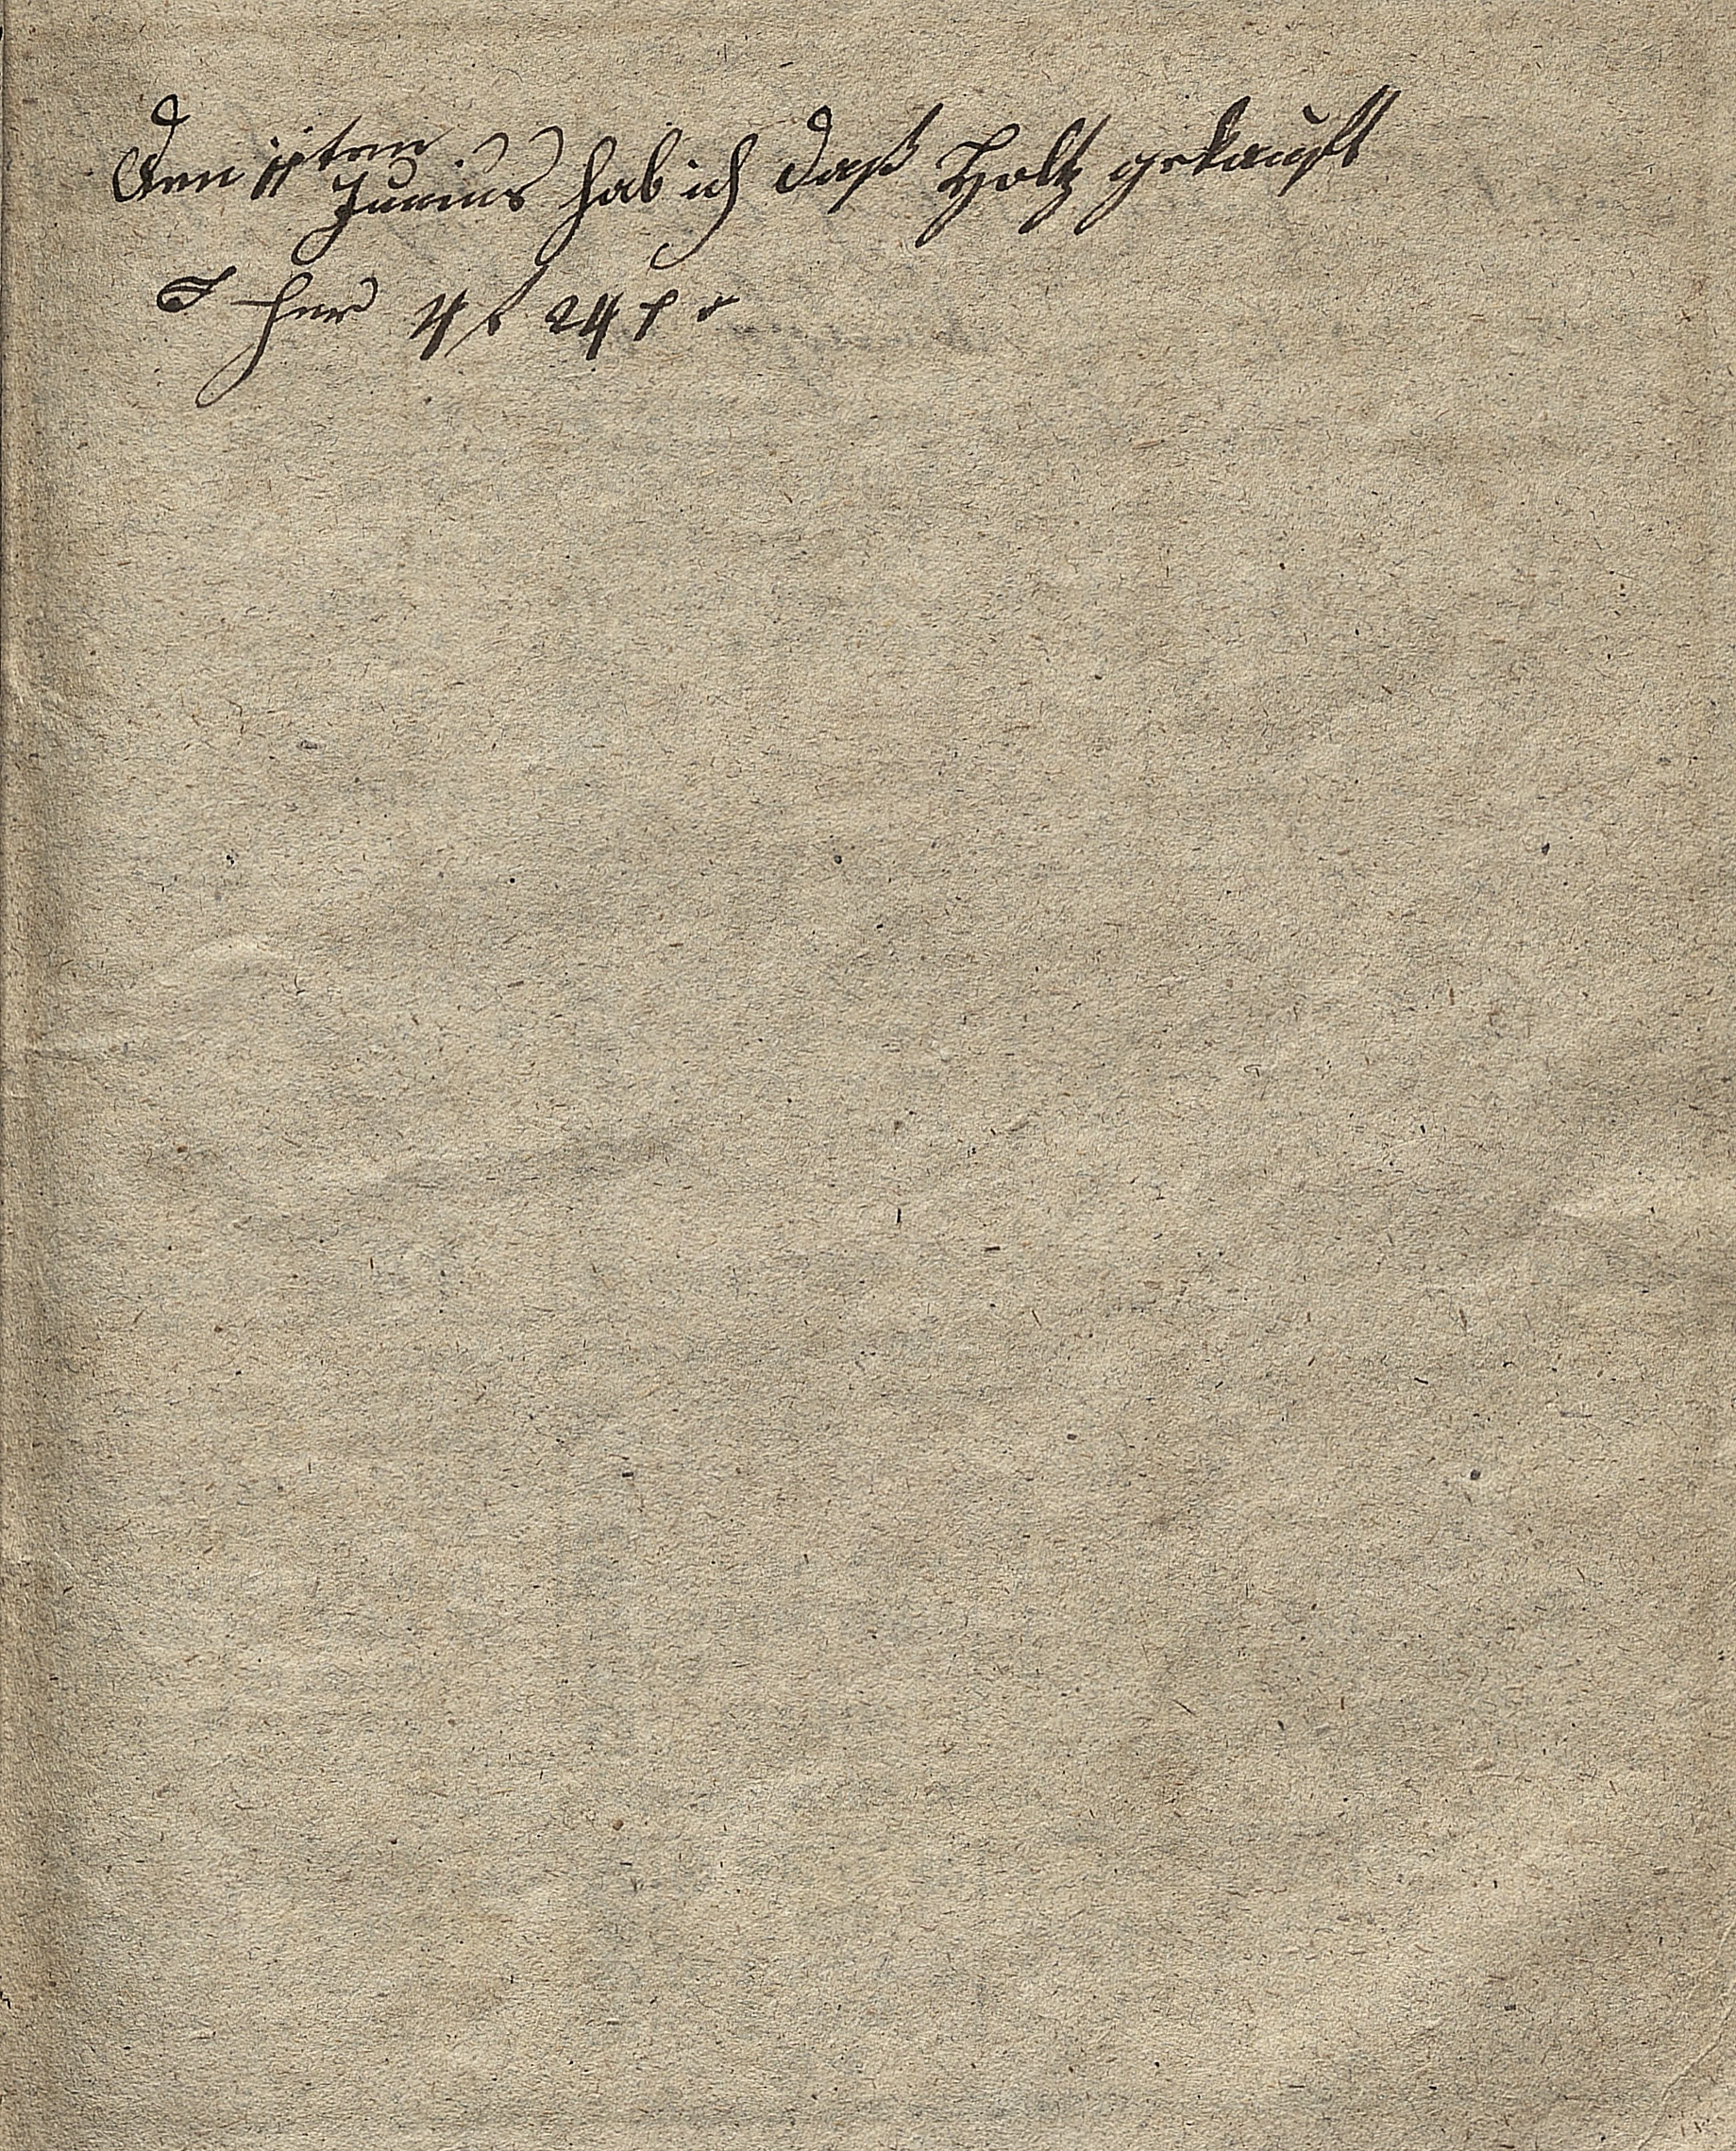 Den 11ten Junius hab ich daß Holtz gekauft
für 4 f 24 x